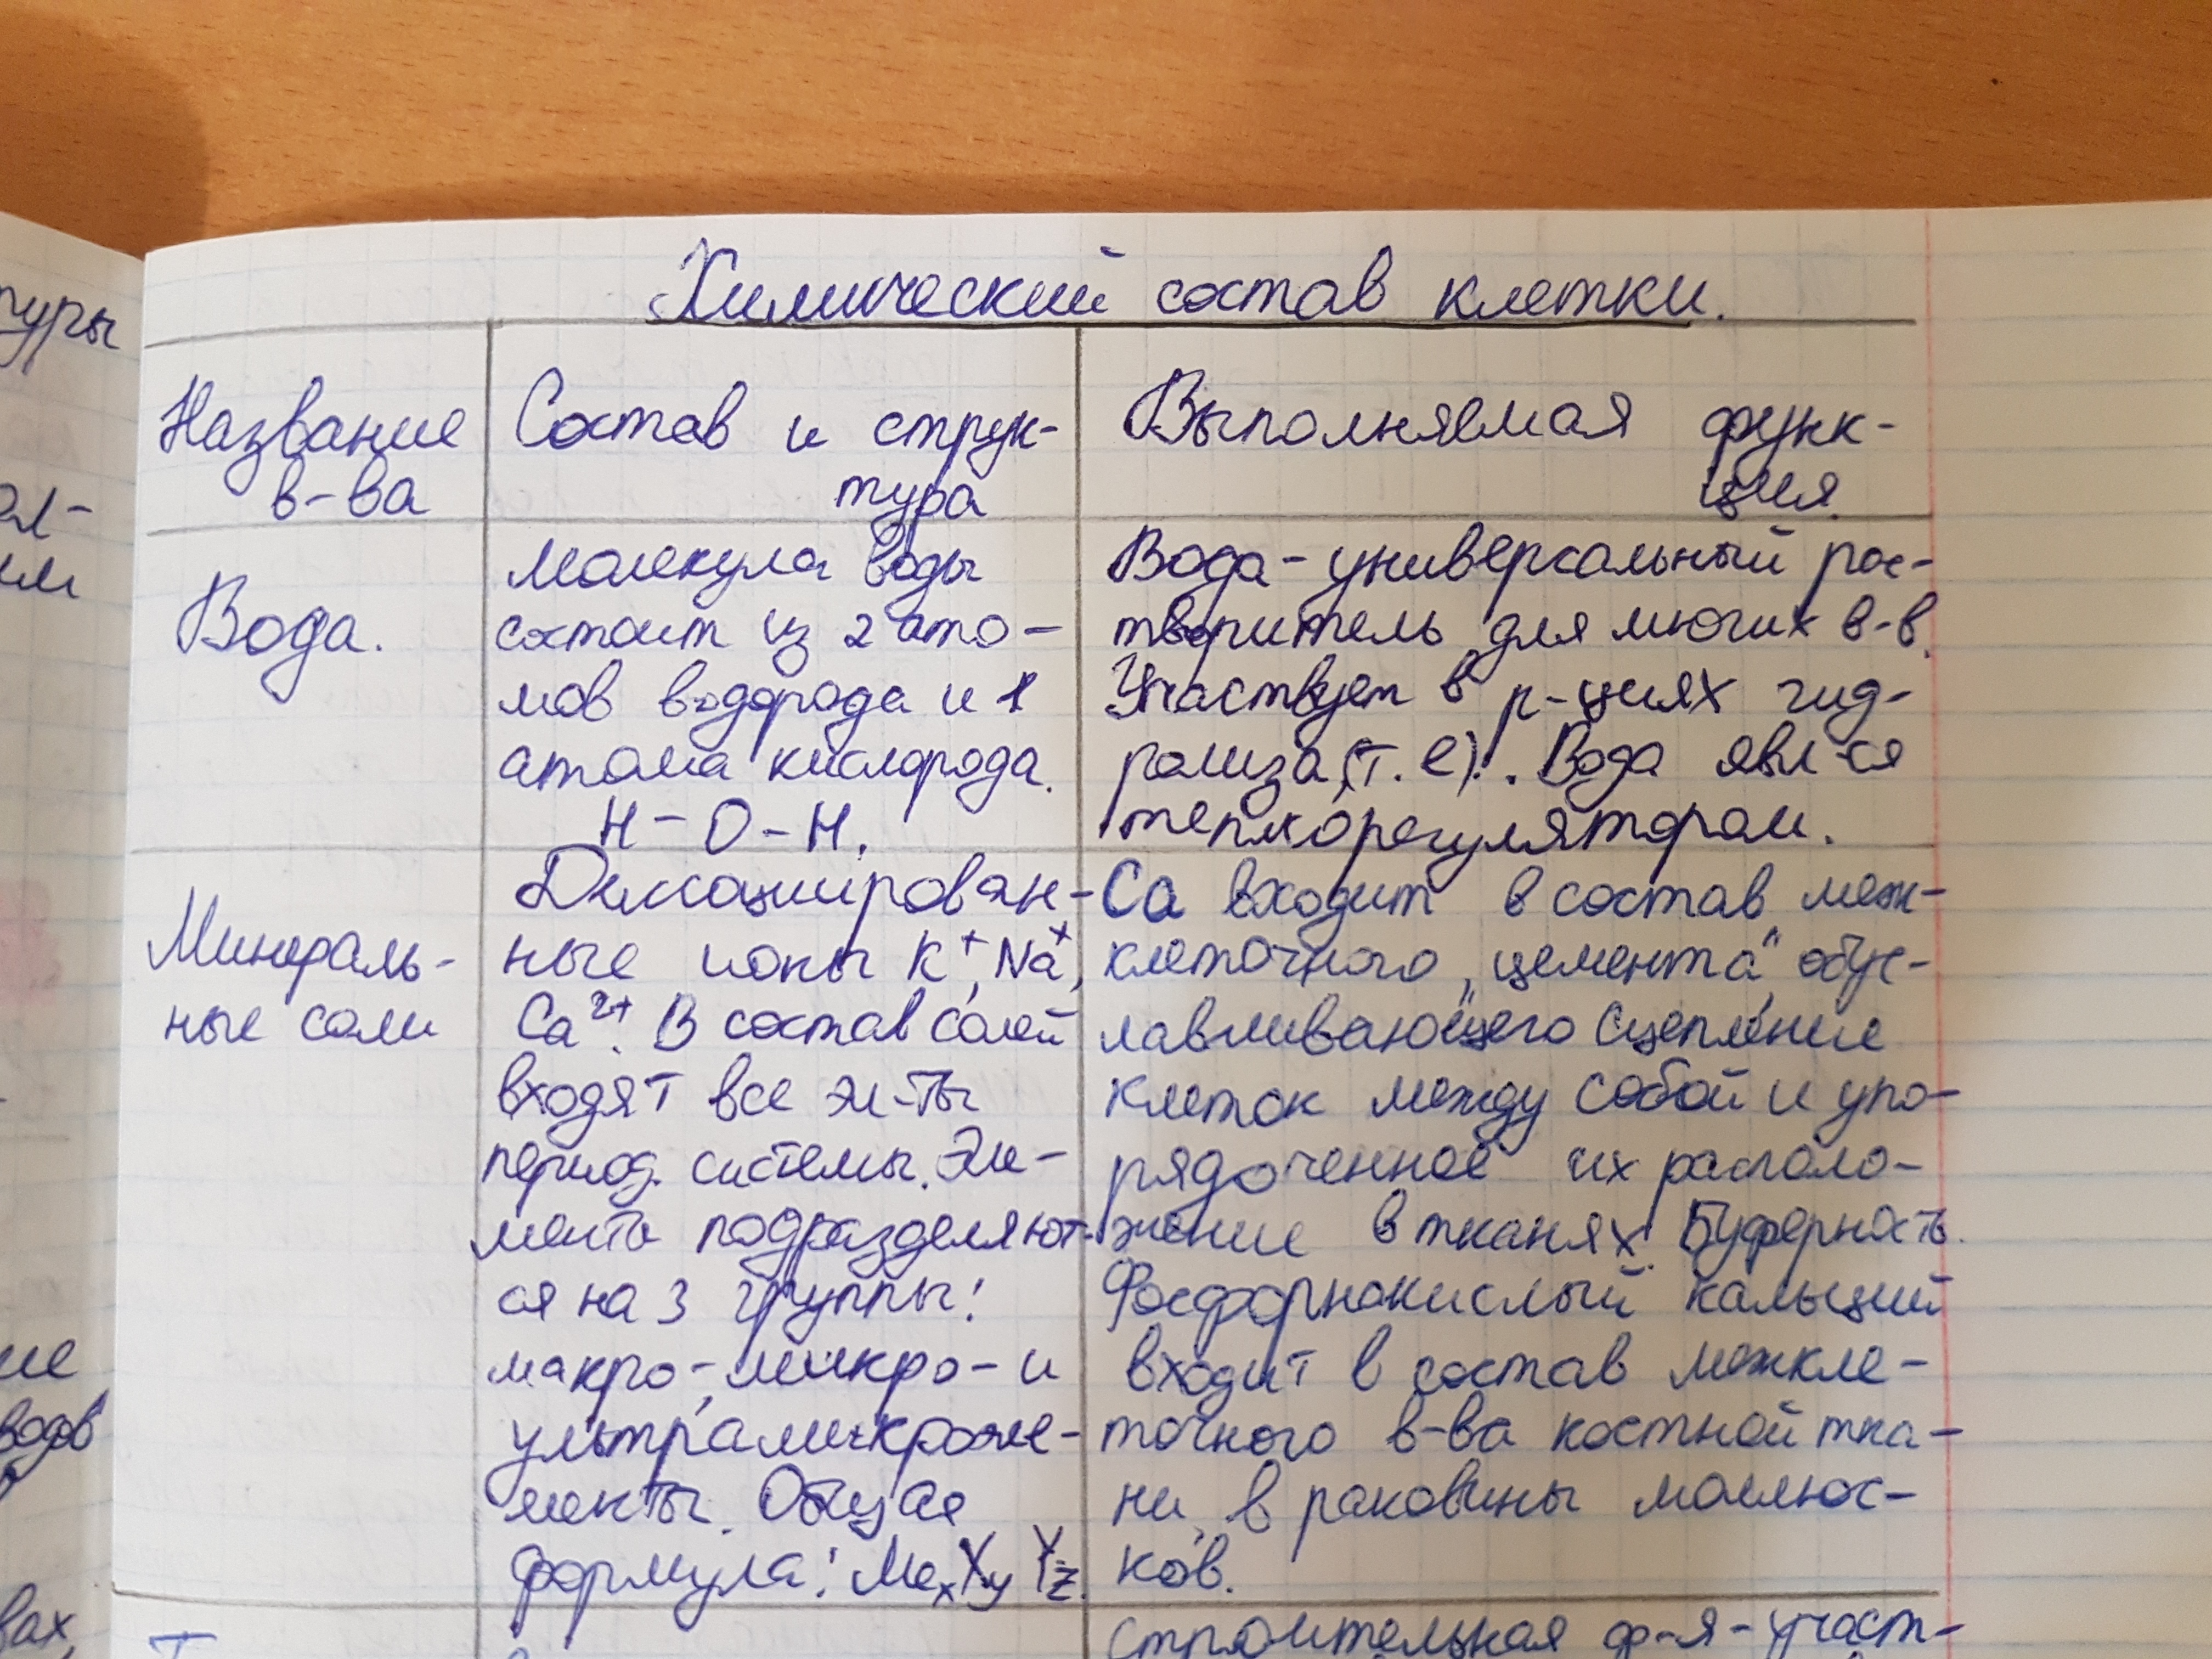 Химический состав клетки.
Название
в-ва
Состав и струк-
тура
Выполняемая функ-
ция.
Вода.
Молекула воды
состоит из 2 ато-
мов водорода и 1
атома кислорода.
H - O - H.
Вода - универсальный рас-
творитель для многих в-в.
Участвует в р-циях гид-
ролиза (т. е). Вода явл-ся
теплорегулятором.
Минераль-
ные соли
Диссоциирован-
ные ионы K⁺, Na⁺,
Ca²⁺. В состав солей
входят все эл-ты
период. системы. Эле-
менты подразделяют-
ся на 3 группы:
макро-, микро- и
ультрамикроэле-
менты. Общая
формула: MeₓXᵧY_z.
Ca входит в состав меж-
клеточного „цемента", обус-
лавливающего сцепление
клеток между собой и упо-
рядоченное их располо-
жение в тканях. Буферность.
Фосфорнокислый кальций
входит в состав межкле-
точного в-ва костной тка-
ни, в раковины моллюс-
ков.
строительная ф-я - участ-
туры
ал-
им
ие
водов
вах,